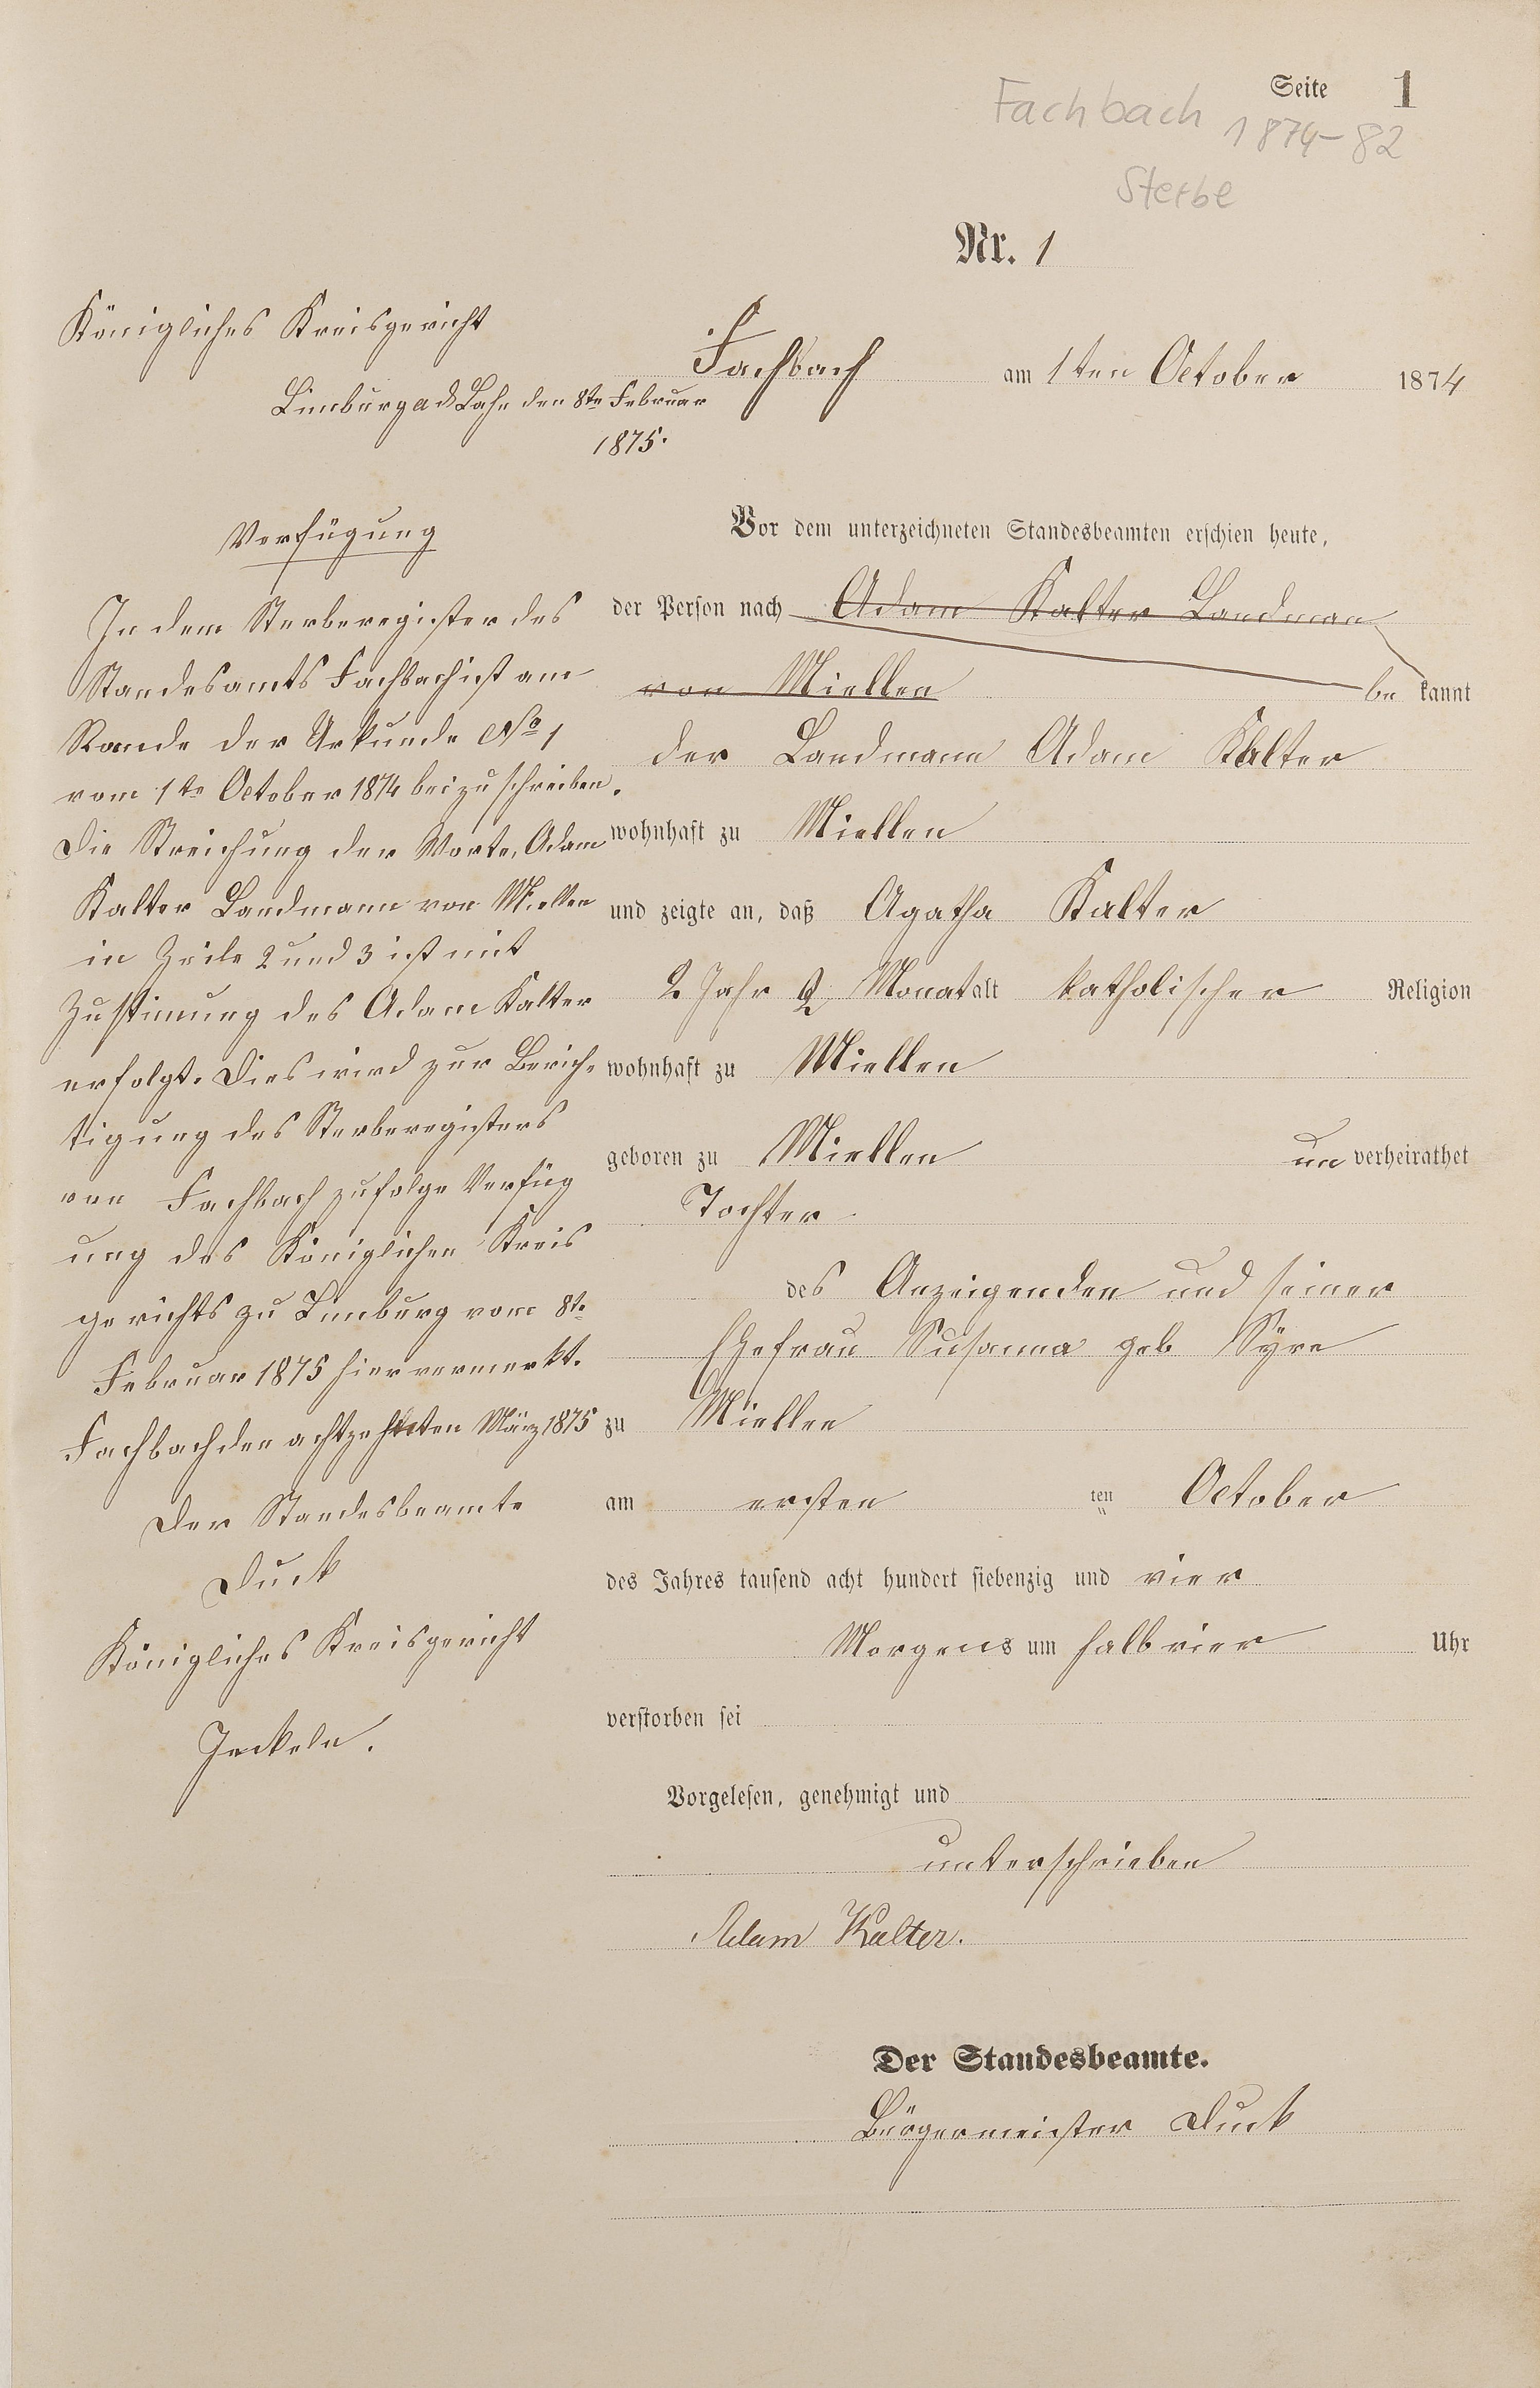 Seite 1
Fachbach
1874-82
Sterbe
Nr. 1
Königliches Kreisgericht
Limburg a d Lahn den 8te Februar
1875.
Verfügung
In dem Sterberegister des
Standesamts Fachbach ist am
Rande der Urkunde No 1
vom 1te October 1874 beizuschreiben.
Die Streichung der Worte, Adam
Kalter Landmann von Miellen
in Zeile 2 und 3 ist mit
Zustimmung des Adam Kalter
erfolgt. Dies wird zur Berich-
tigung des Sterberegisters
von Fachbach zufolge Verfüg
ung des Königlichen Kreis
gerichts zu Limburg vom 8te
Februar 1875 hier vermerkt.
Fachbach den achtzehnten März 1875
Der Standesbeamte
Duck
Königliches Kreisgericht
Jeckeln.
Fachbach am 1ten October 1874
Vor dem unterzeichneten Standesbeamten erschien heute,
der Person nach Adam Kalter Landman
von Miellen be kannt
der Landmann Adam Kalter
wohnhaft zu Miellen
und zeigte an, daß Agatha Kalter
2 Jahr 2 Monat alt katholischer Religion
wohnhaft zu Miellen
geboren zu Miellen un verheirathet
Tochter
des Anzeigenden und seiner
Ehefrau Susanna geb Syre
zu Miellen
am ersten ten October
des Jahres tausend acht hundert siebenzig und vier
Morgens um halb vier Uhr
verstorben sei
Vorgelesen, genehmigt und
unterschrieben
Adam Kalter.
Der Standesbeamte.
Bürgermeister Duck